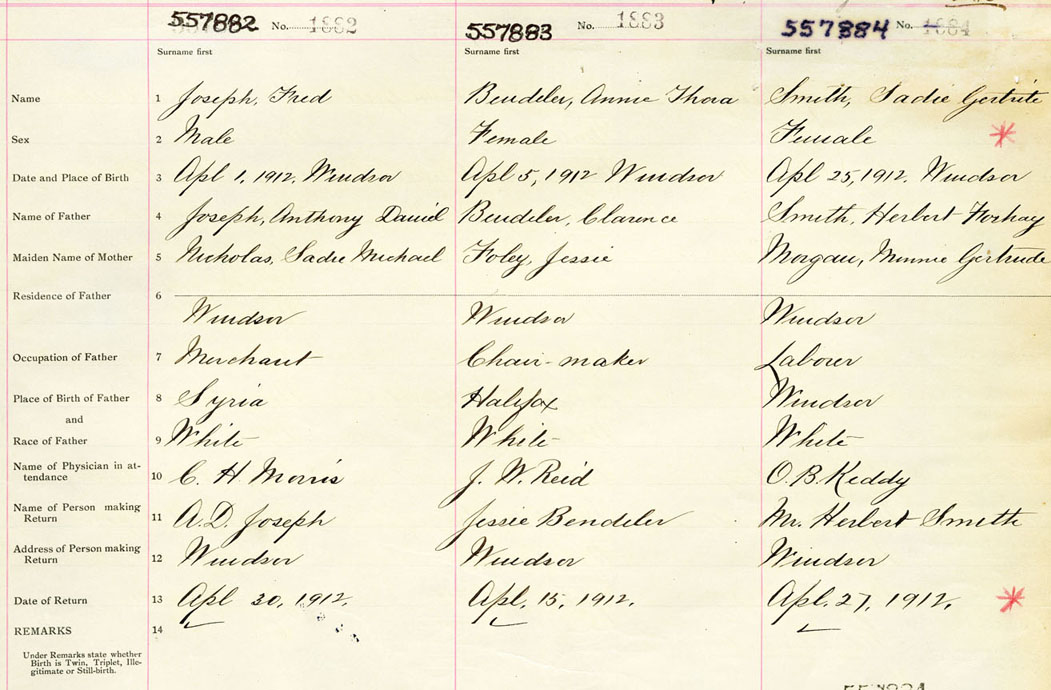 557882 No. 1882 557883 No. 1883 557884 No. 1884
Surname first Surname first Surname first
Name 1 Joseph, Fred Bendeler, Annie Thora Smith, Sadie Gertrite
Sex 2 Male Female Female
Date and Place of Birth 3 Apl 1, 1912. Windsor Apl 5, 1912 Windsor Apl 25, 1912. Windsor
Name of Father 4 Joseph, Anthony Daniel Bendeler, Clarence Smith, Herbert Forhay
Maiden Name of Mother 5 Nicholas, Sadie Michael Foley, Jessie Morgan, Minnie Gertrude
Residence of Father 6
Windsor Windsor Windsor
Occupation of Father 7 Merchant Chair-maker Laborer
Place of Birth of Father 8 Syria Halifax Windsor
and
Race of Father 9 White White White
Name of Physician in at-
tendance 10 C. H. Morris J. W. Reid O. B. Keddy
Name of Person making
Return 11 A. D. Joseph Jessie Bendeler Mr. Herbert Smith
Address of Person making
Return 12 Windsor Windsor Windsor
Date of Return 13 Apl 30, 1912. Apl. 15, 1912. Apl. 27, 1912.
REMARKS 14
Under Remarks state whether
Birth is Twin, Triplet, Ille-
gitimate or Still-birth.